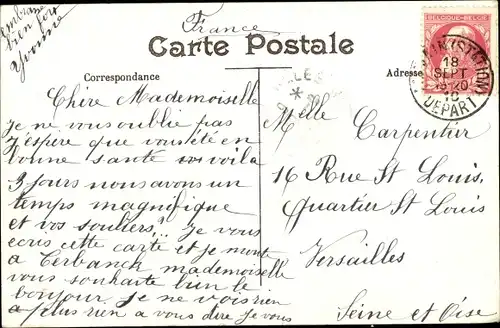 embrasse
bien fort
Yvonne
France
Carte Postale
Correspondance
Adresse
BELGIQUE-BELGIË
18
SEPT
19-20
10
DEPART
Chère Mademoiselle
Je ne vous oublié pas
J'espère que vous été en
bonne santé voila
3 jours nous avons un
temps magnifique
et vos souliers? Je vous
ecris cette carte et je
a Terbanck mademoiselle
vous souhaite bien le
bonjour. Je ne vois rien
a plus rien a vous dire Je vous
Melle
Carpentier
16 Rue St Louis,
Quartier St Louis
Versailles
Seine et Oise